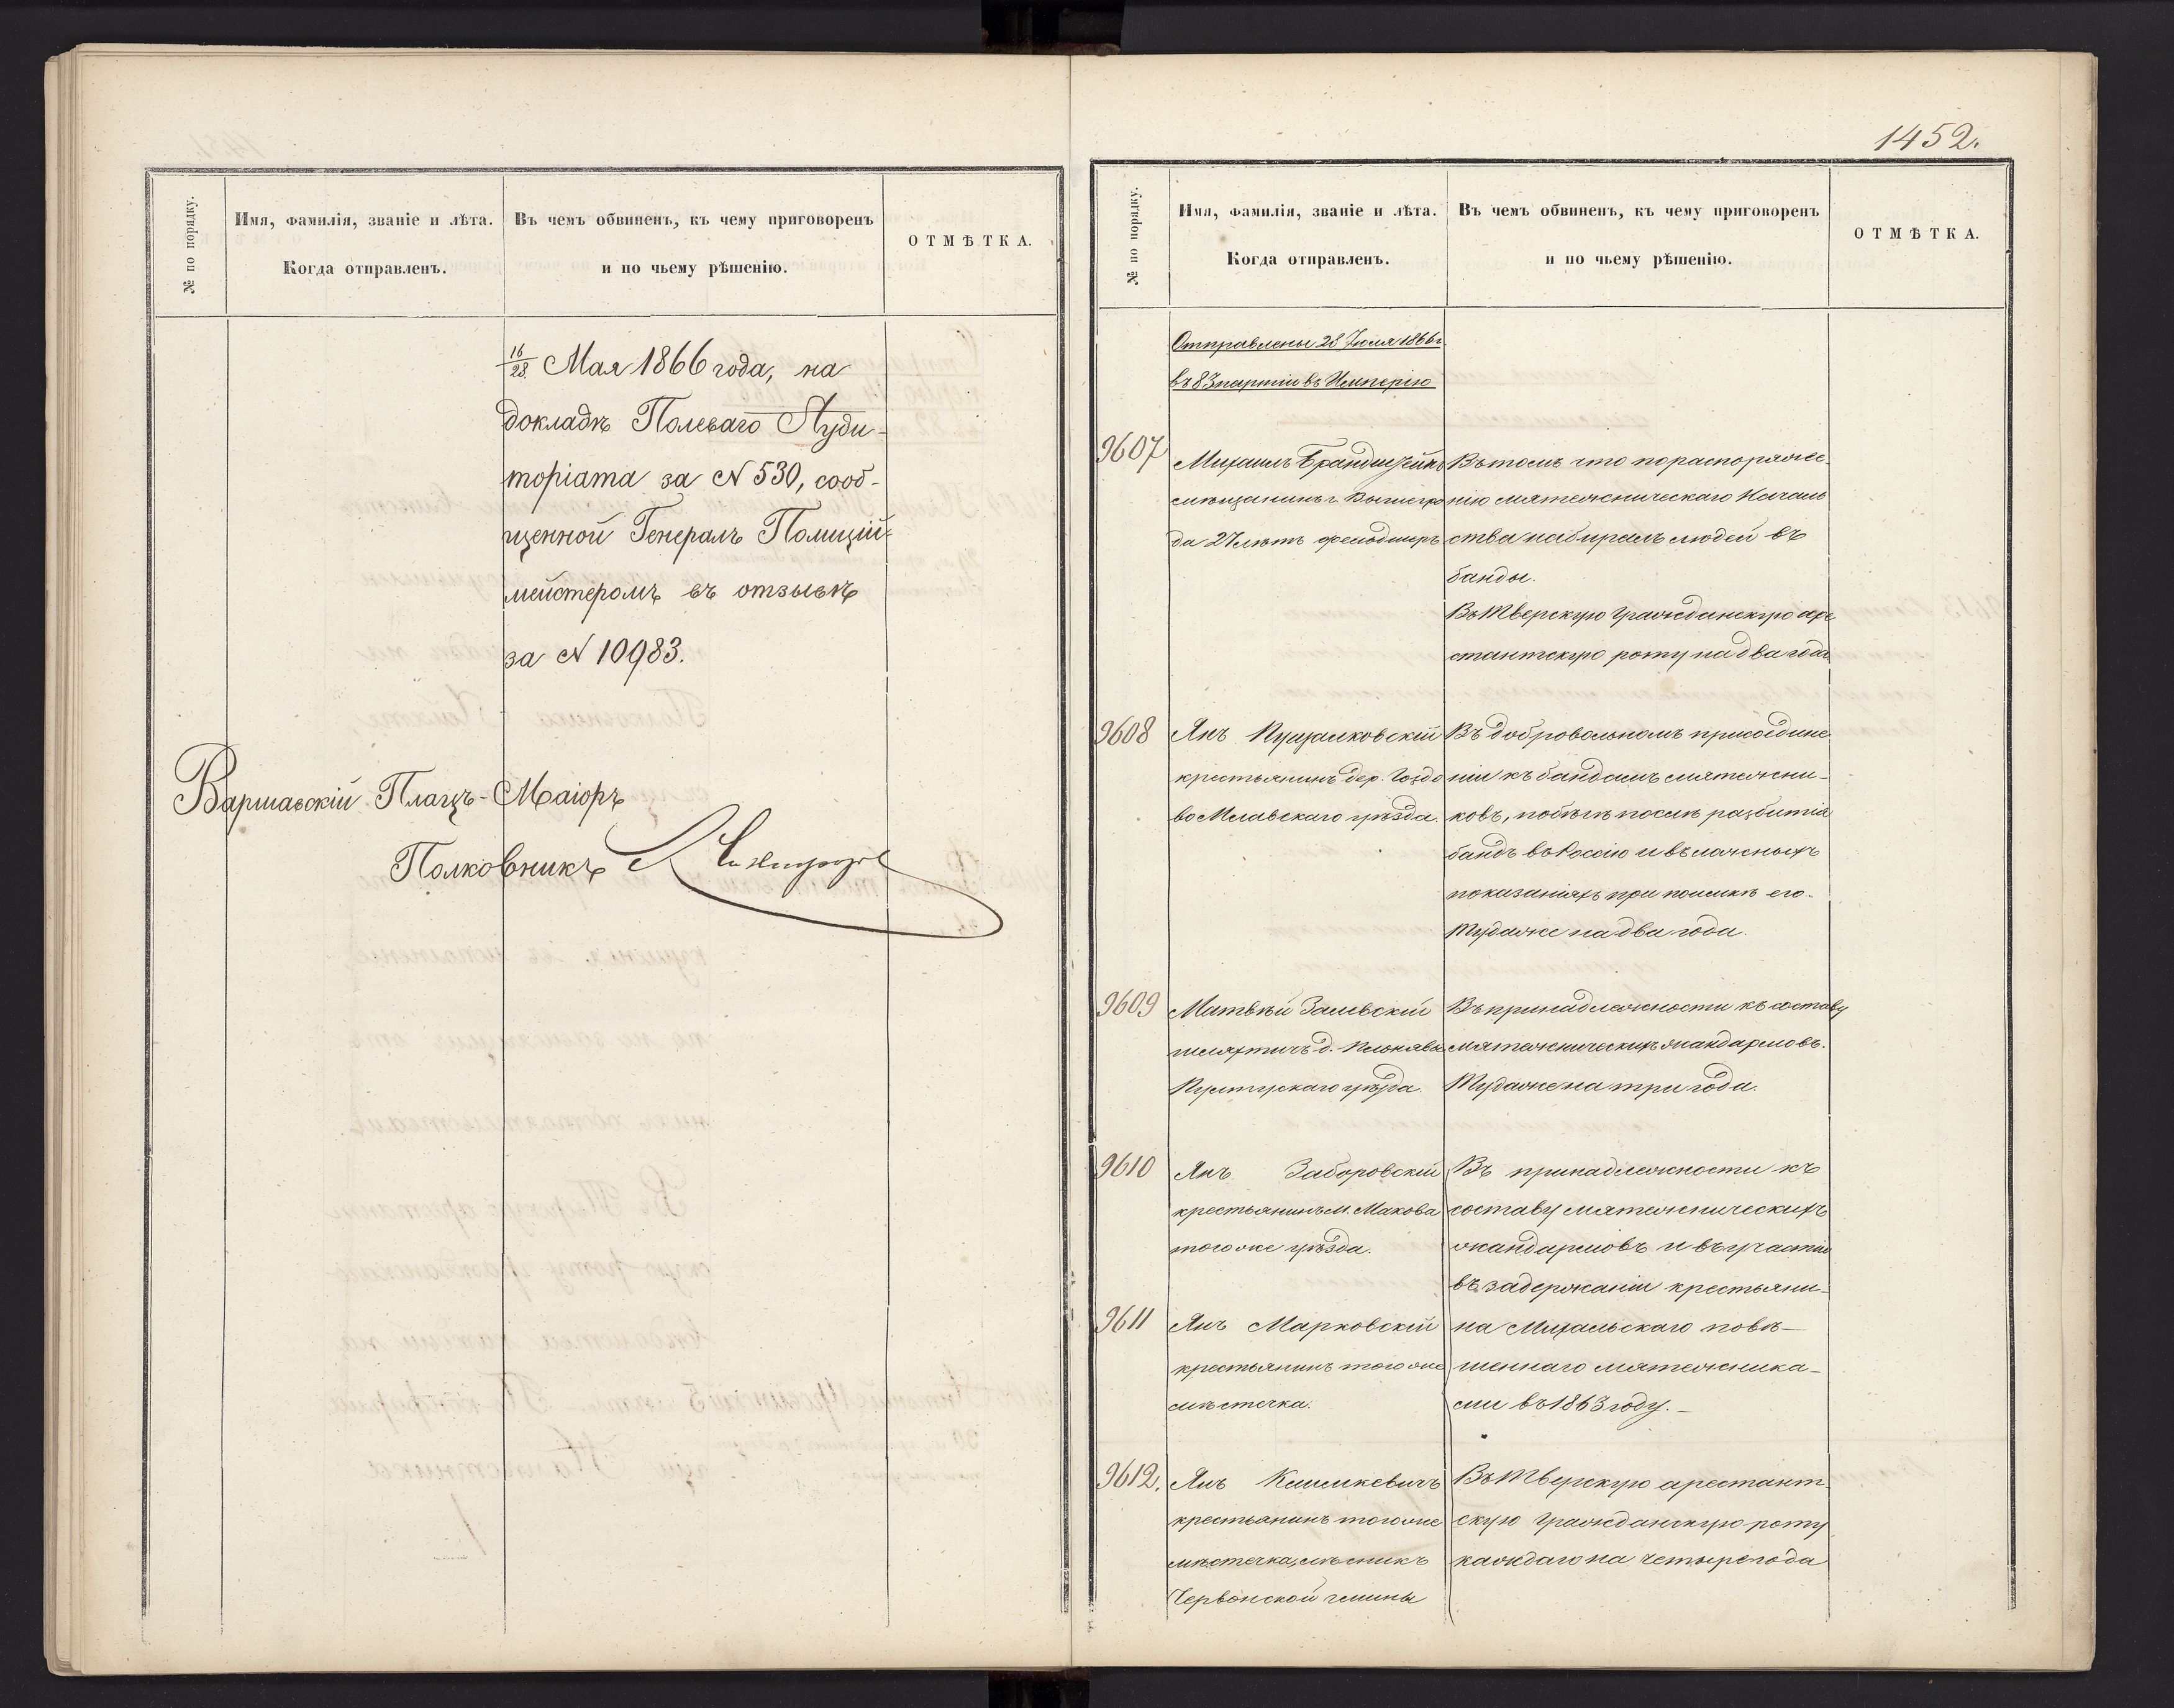 № по порядку.
Имя, фамилія, званіе и лѣта.
Когда отправленъ.
Въ чемъ обвиненъ, къ чему приговоренъ
и по чьему рѣшенію.
ОТМѢТКА.
16/28 Мая 1866 года, на
докладѣ Полеваго Ауди-
торіата за N 530, сооб-
щенной Генералъ Полицій-
мейстеромъ въ отзывѣ
за N 10983.
Варшавскій Плацъ-Маіоръ
Полковникъ
1452.
№ по порядку.
Имя, фамилія, званіе и лѣта.
Когда отправленъ.
Въ чемъ обвиненъ, къ чему приговоренъ
и по чьему рѣшенію.
ОТМѢТКА.
Отправлены 28 Іюля 1866 г.
въ 83 партіи въ Имперію
9607
Михаилъ
мѣщанинъ г. Вышегро
да 27 лѣтъ фельдшеръ
Въ томъ что по распоряже-
нію мятежническаго Началь
ства набиралъ людей въ
банды.
Въ Тверскую Гражданскую аре
стантскую роту на два года.
9608
Янъ
крестьянинъ дер. Гоздо
во Млавскаго уѣзда.
Въ добровольномъ присоедине
ніи къ бандамъ мятежни-
ковъ, побѣгѣ послѣ разбитія
бандъ въ Россію и въ ложныхъ
показаніяхъ при поимкѣ его.
Туда же на два года.
9609
Матвѣй Залевскій
шляхтичъ д.
Пултускаго уѣзда.
Въ принадлежности къ составу
мятежническихъ жандармовъ.
Туда же на три года.
9610
Янъ Заборовскій
крестьянинъ м. Макова
того же уѣзда.
Въ принадлежности къ
составу мятежническихъ
жандармовъ и въ участіи
въ задержаніи крестьяни-
9611
Янъ Марковскій
крестьянинъ того же
мѣстечка.
на Михальскаго повѣ-
шеннаго мятежника-
ми въ 1863 году.
9612.
Янъ Климкевичъ
крестьянинъ того же
мѣстечка,
Червонской гмины
Въ Тверскую арестант-
скую Гражданскую роту
каждаго на четыре года